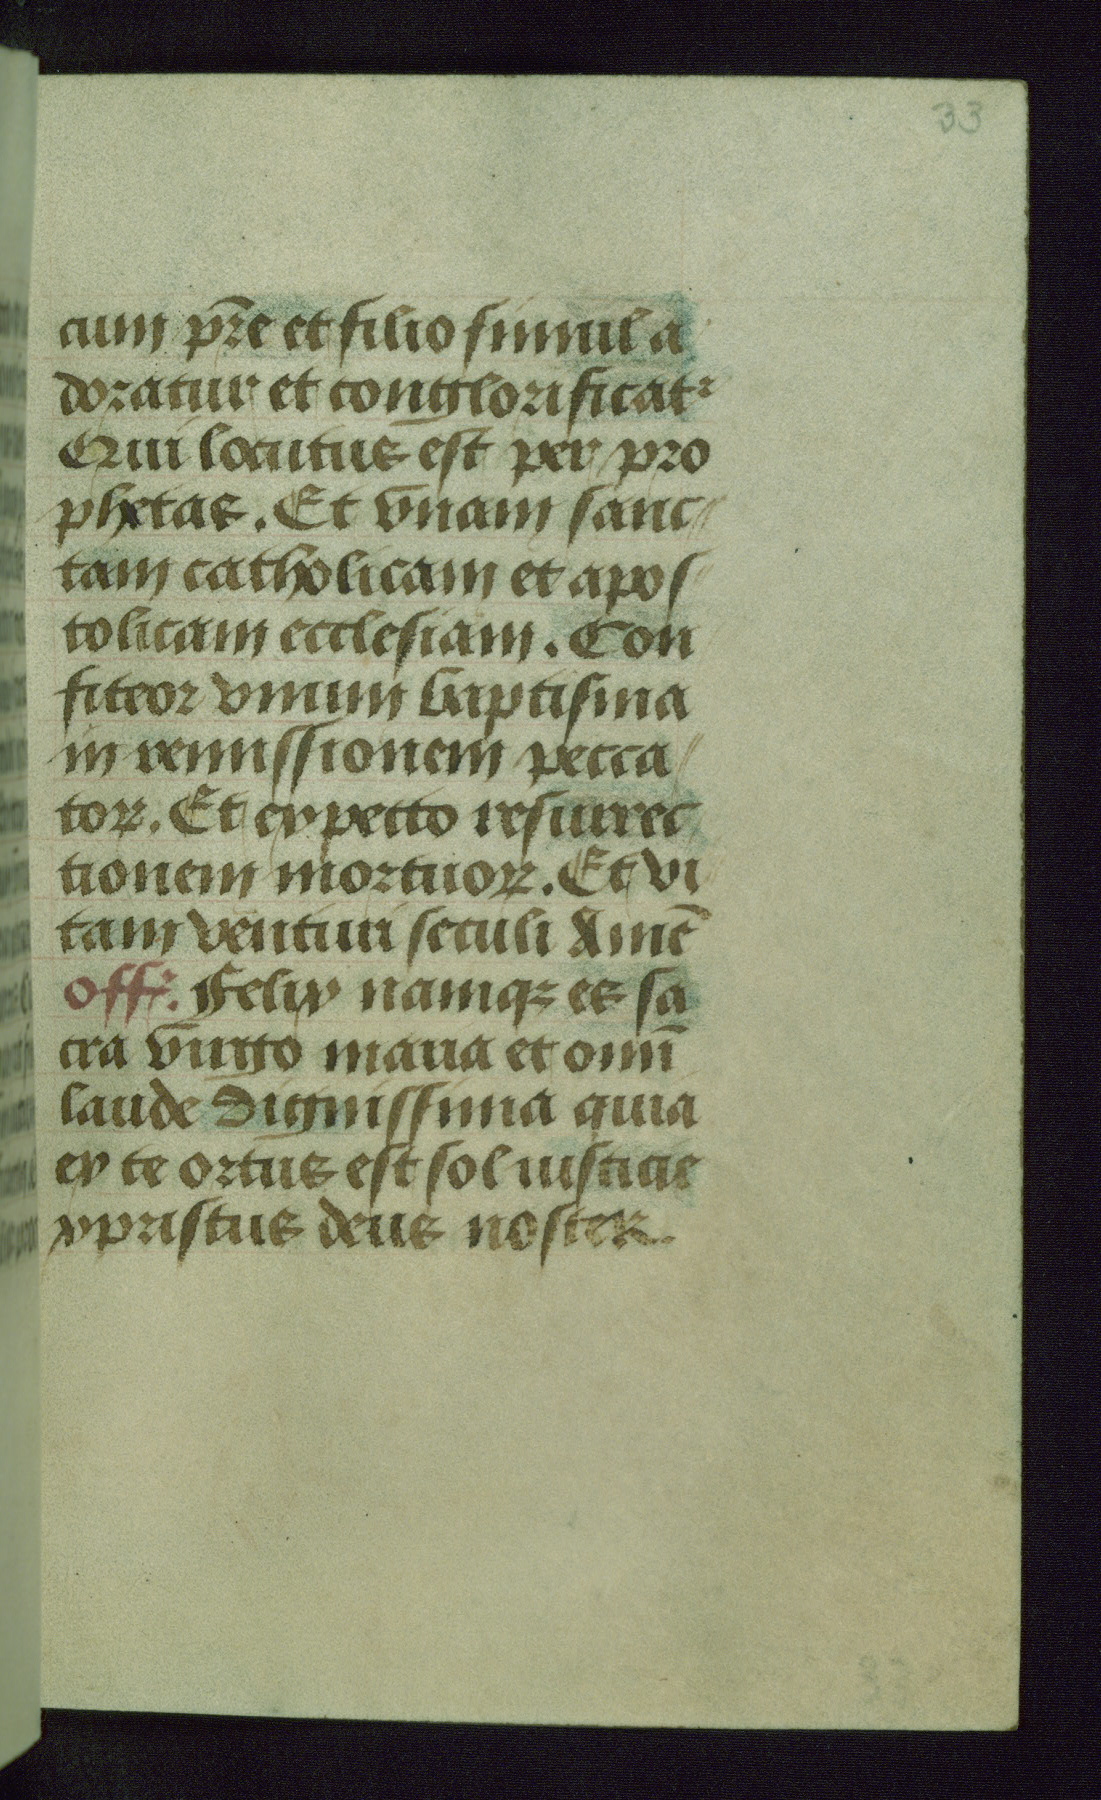 33
cum p̄re et filio simul a
doratur et conglorificatꝛ
Qui locutus est per pro
phetas. Et vnam sanc
tam catholicam et apos
tolicam ecclesiam. Con
fiteor vnum baptisma
in remissionem pecca
toꝝ. Et expecto resurrec
tionem mortuoꝝ. Et vi
tam venturi seculi Amē
offr̄. Felix namqꝫ es sa
cra virgo maria et omī
laude dignissima quia
ex te ortus est sol iusticie
xpristus deus noster.